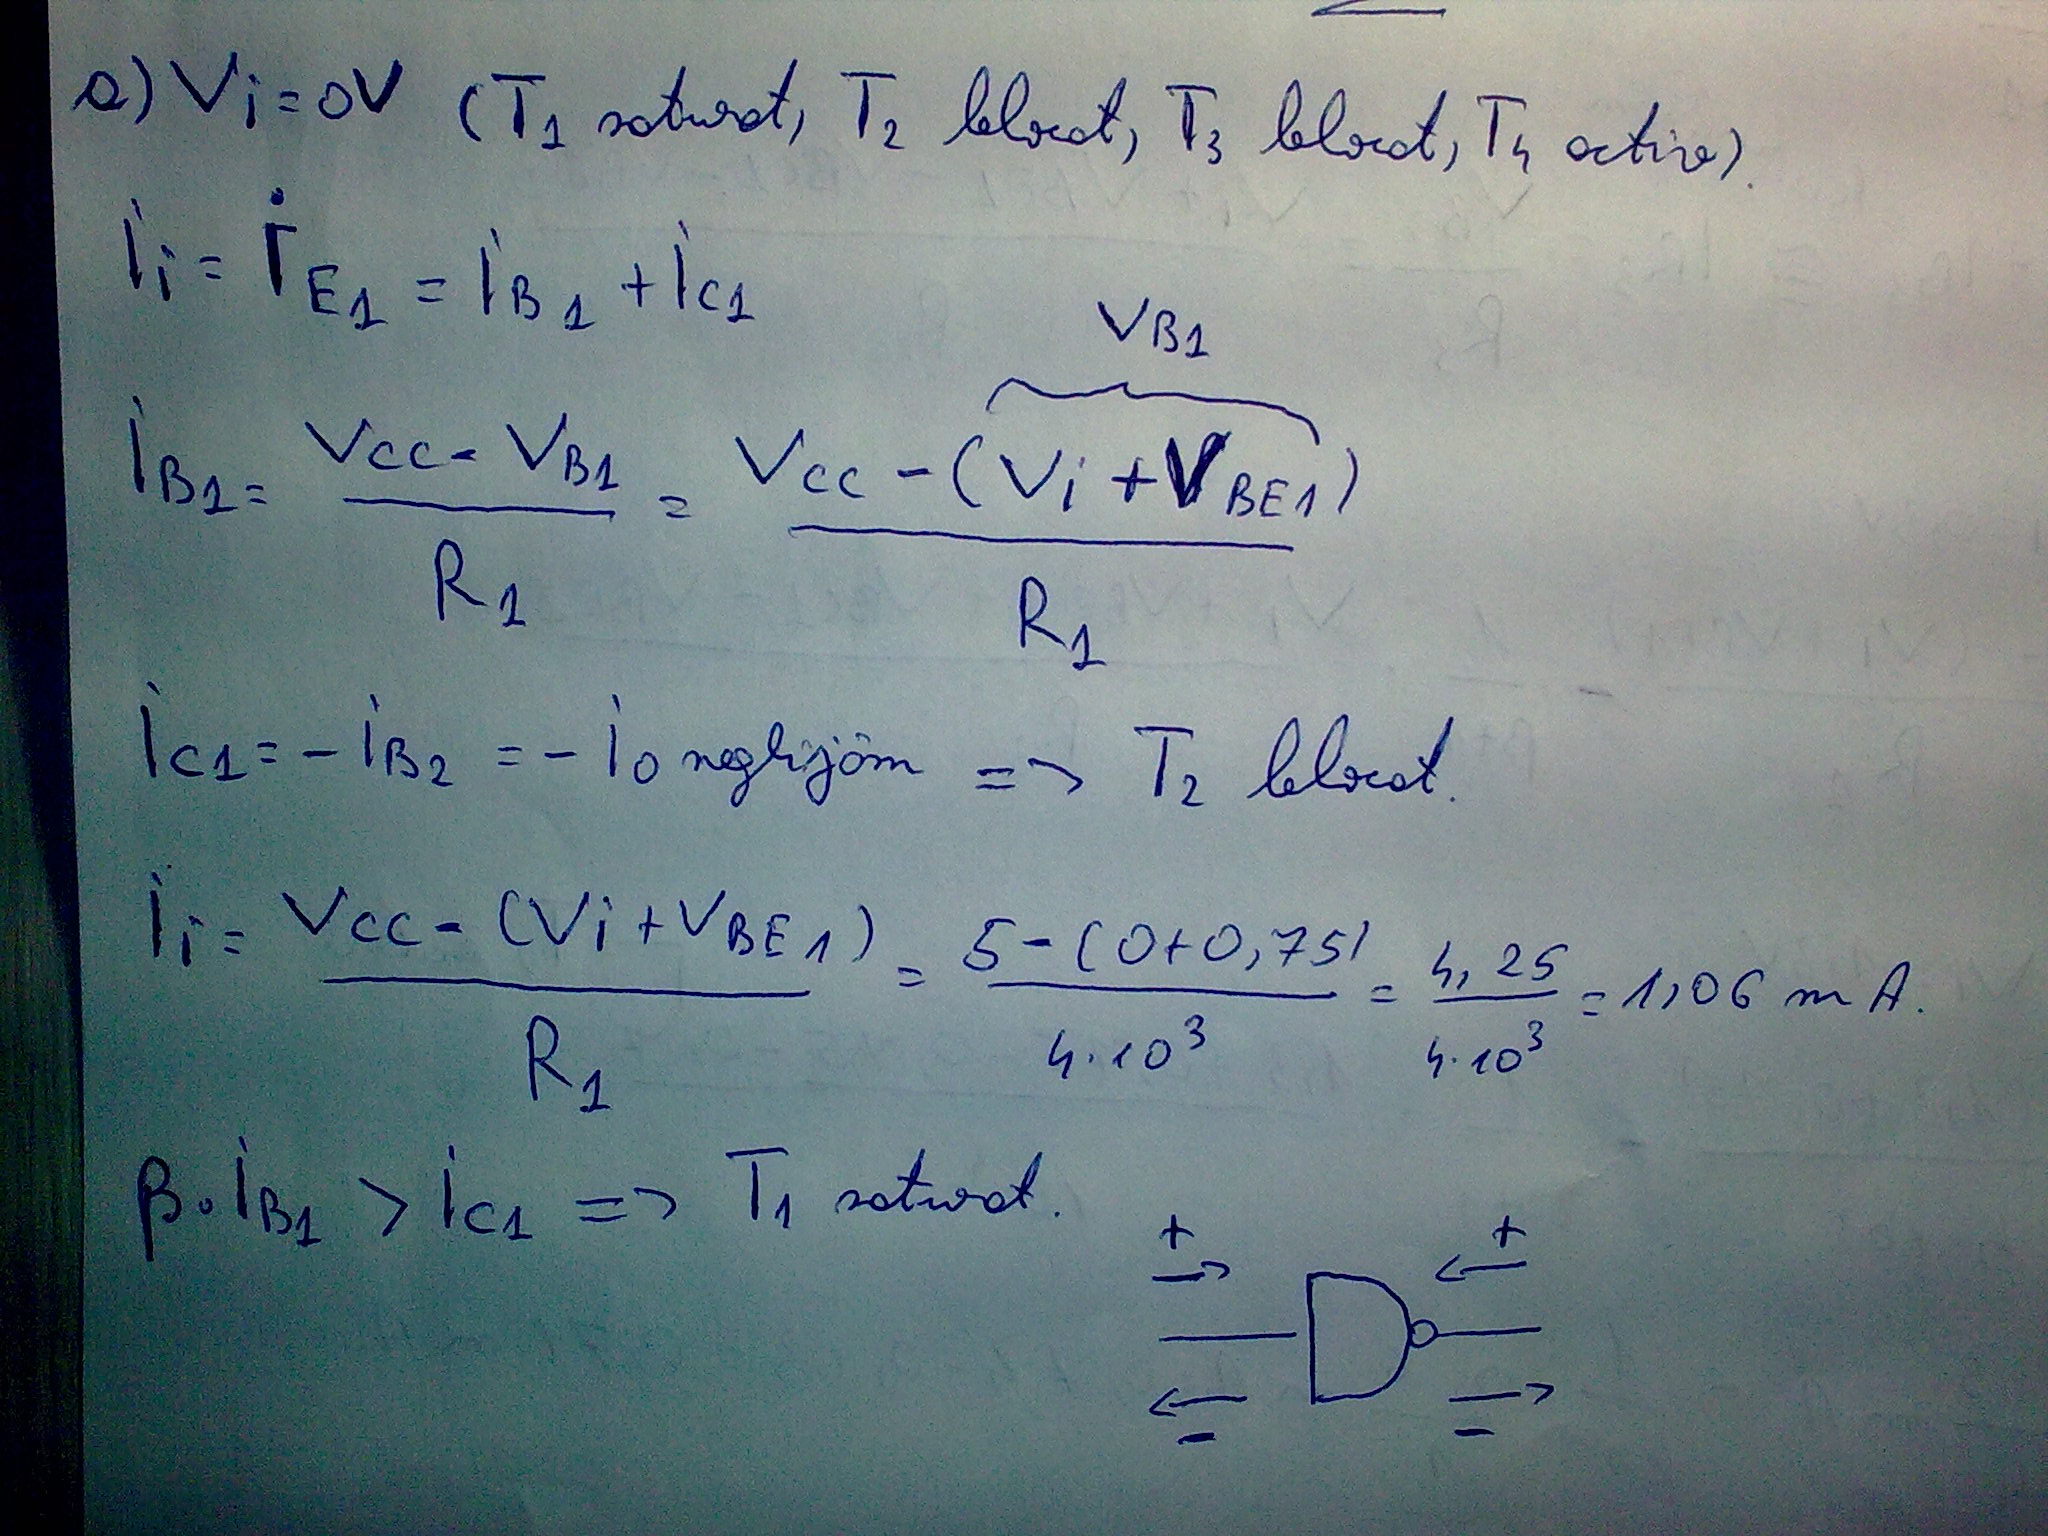 a) Vi = 0V (T1 saturat, T2 blocat, T3 blocat, T4 activ).
ii = iE1 = iB1 + iC1
VB1
iB1 = (VCC - VB1) / R1 = (VCC - (Vi + VBE1)) / R1
iC1 = - iB2 = - i0 neglijăm => T2 blocat.
ii = (VCC - (Vi + VBE1)) / R1 = (5 - (0+0,75)) / 4·10³ = 4,25 / 4·10³ = 1,06 mA.
β·iB1 > iC1 => T1 saturat.
+ +
- -